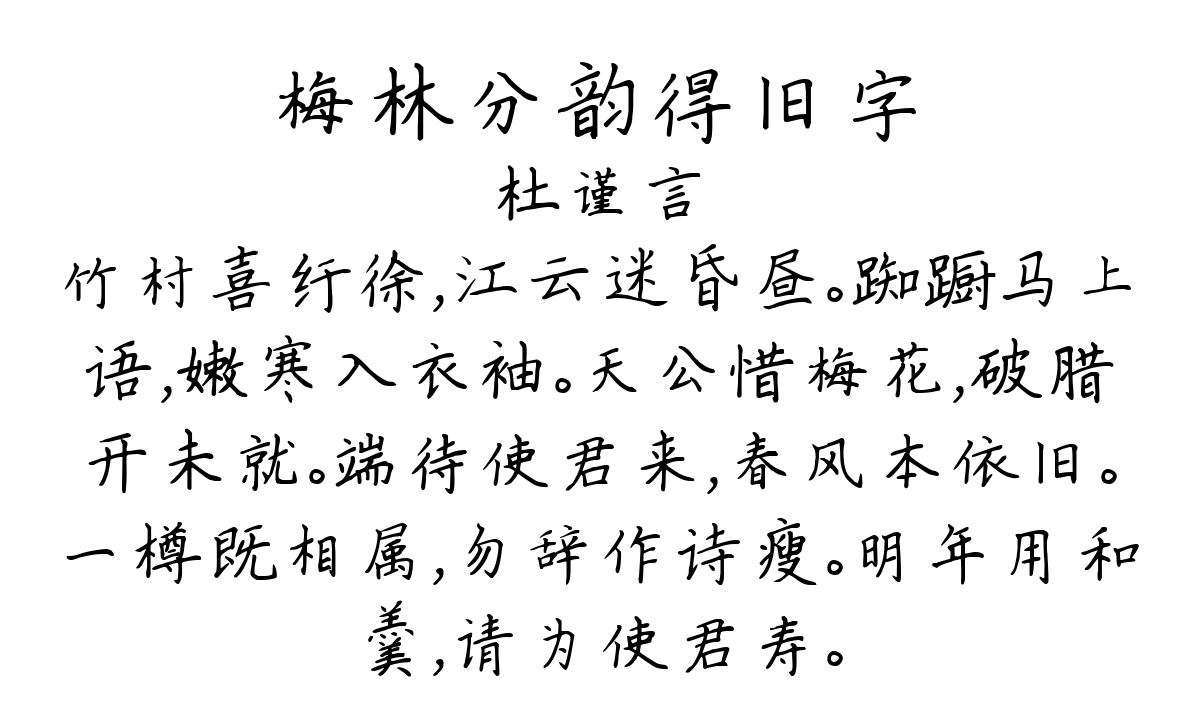 梅林分韵得旧字
杜谨言
竹村喜纡徐,江云迷昏昼。踟蹰马上
语,嫩寒入衣袖。天公惜梅花,破腊
开未就。端待使君来,春风本依旧。
一樽既相属,勿辞作诗瘦。明年用和
羹,请为使君寿。